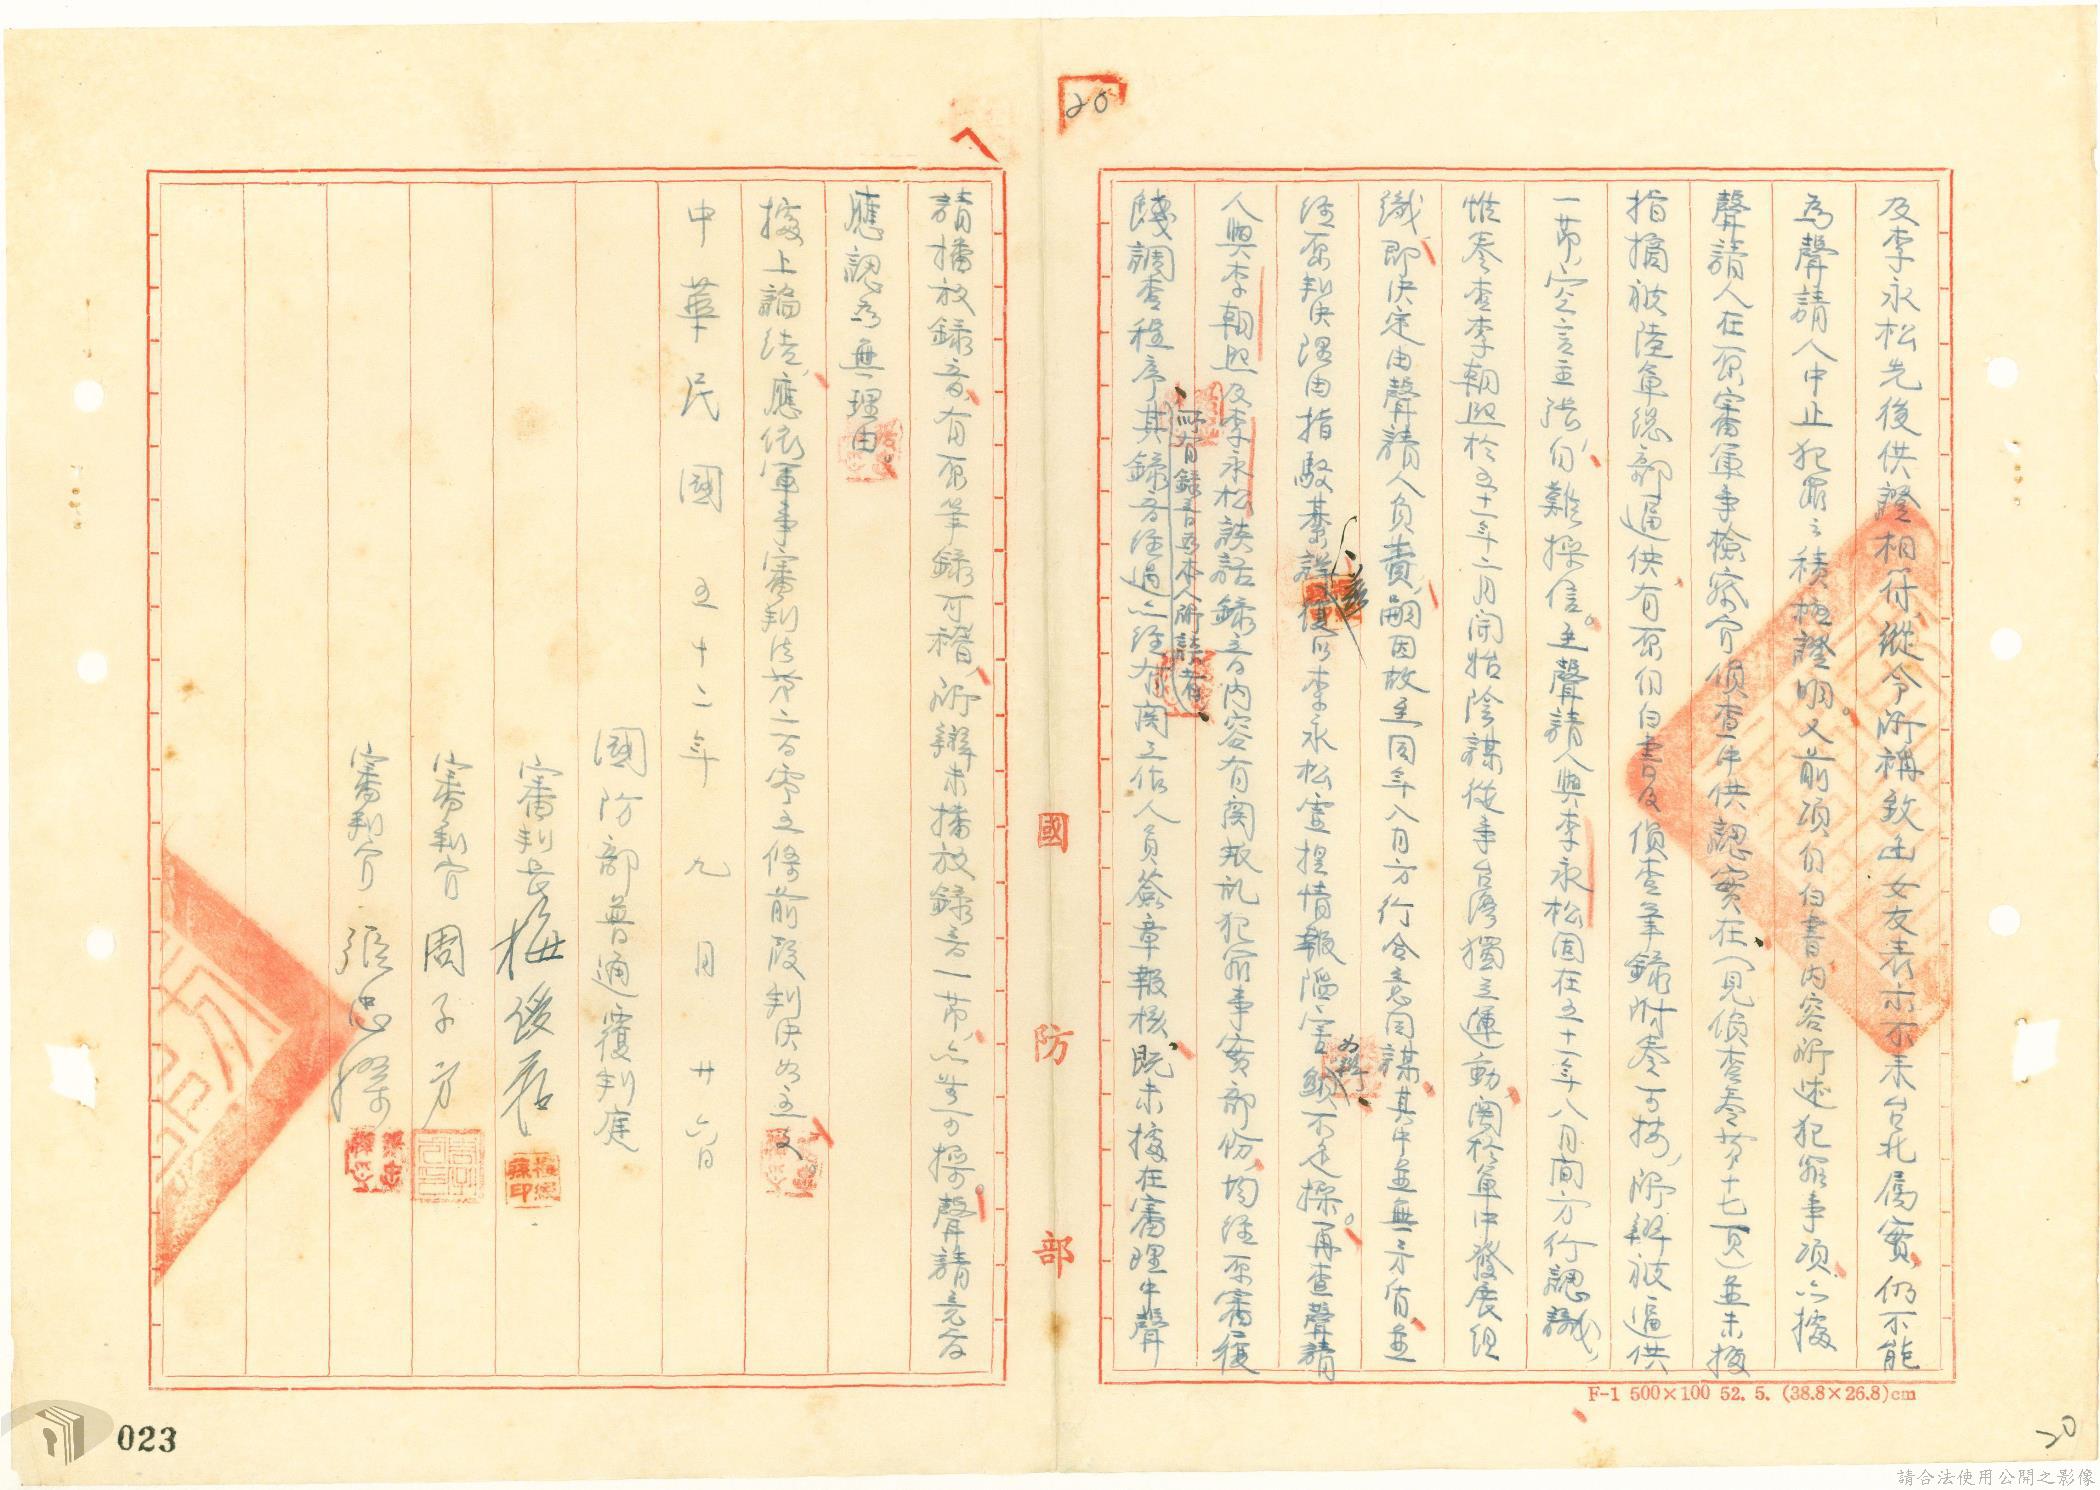 20
及李永松先後供證相符，縱令所稱致函女友表示不來台北屬實，仍不能
為聲請人中止犯罪之積極證明。又前項自白書內容所述犯罪事項，亦據
聲請人在原審軍事檢察官偵查中供認實在（見偵查卷第十七頁）並未據
指摘被陸軍總部逼供有原自白書及偵查筆錄附卷可按，所辯被逼供
一節，空言主張，自難採信。至聲請人與李永松固在五十一年八月間方行認識，
惟卷查李朝熙於五十一年二月開始陰謀從事台灣獨立運動，關於軍中發展組
織，即決定由聲請人負責，嗣因故至同年八月方行合意同謀，其中並無矛盾，並
經原判決理由指駁綦詳，茲復以李永松虛捏情報陷害如辯，不足採。再查聲請
人與李朝熙及李永松談話錄音內容有關叛亂犯罪事實部份，均經原審復
所有錄音為本人所談者、
踐調查程序其錄音經過亦經有關工作人員簽章報核，既未據在審理中聲
請播放錄音，有原筆錄可稽，所辯未播放錄音一節，亦無可採。聲請意旨
應認為無理由。
據上論結，應依軍事審判法第二百零五條前段判決如主文。
中華民國五十二年九月廿六日
國防部普通覆判庭
審判長梅俊
審判官周子方
審判官張忠
國防部
F-1 500×100 52. 5. (38.8×26.8)cm
023
20
請合法使用公開之影像